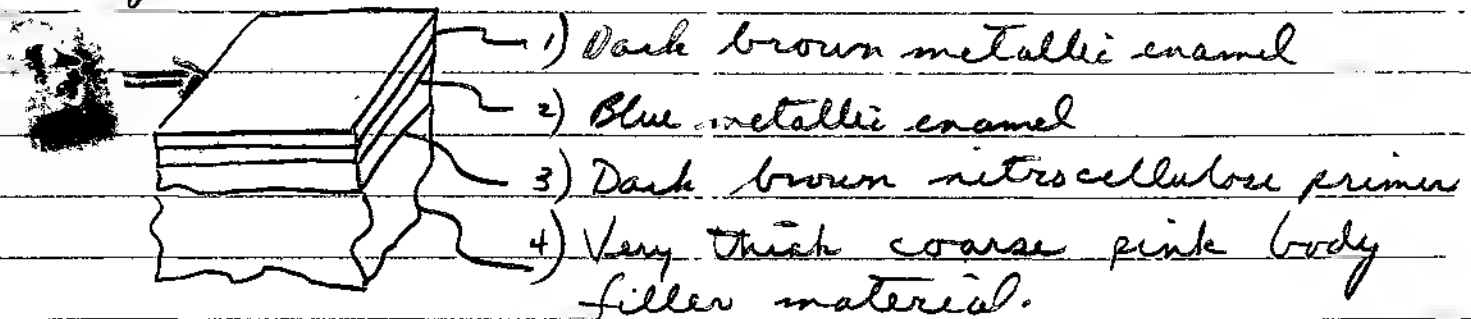 1) Dark brown metallic enamel
2) Blue metallic enamel
3) Dark brown nitrocellulose primer
4) Very thick coarse pink body
filler material.